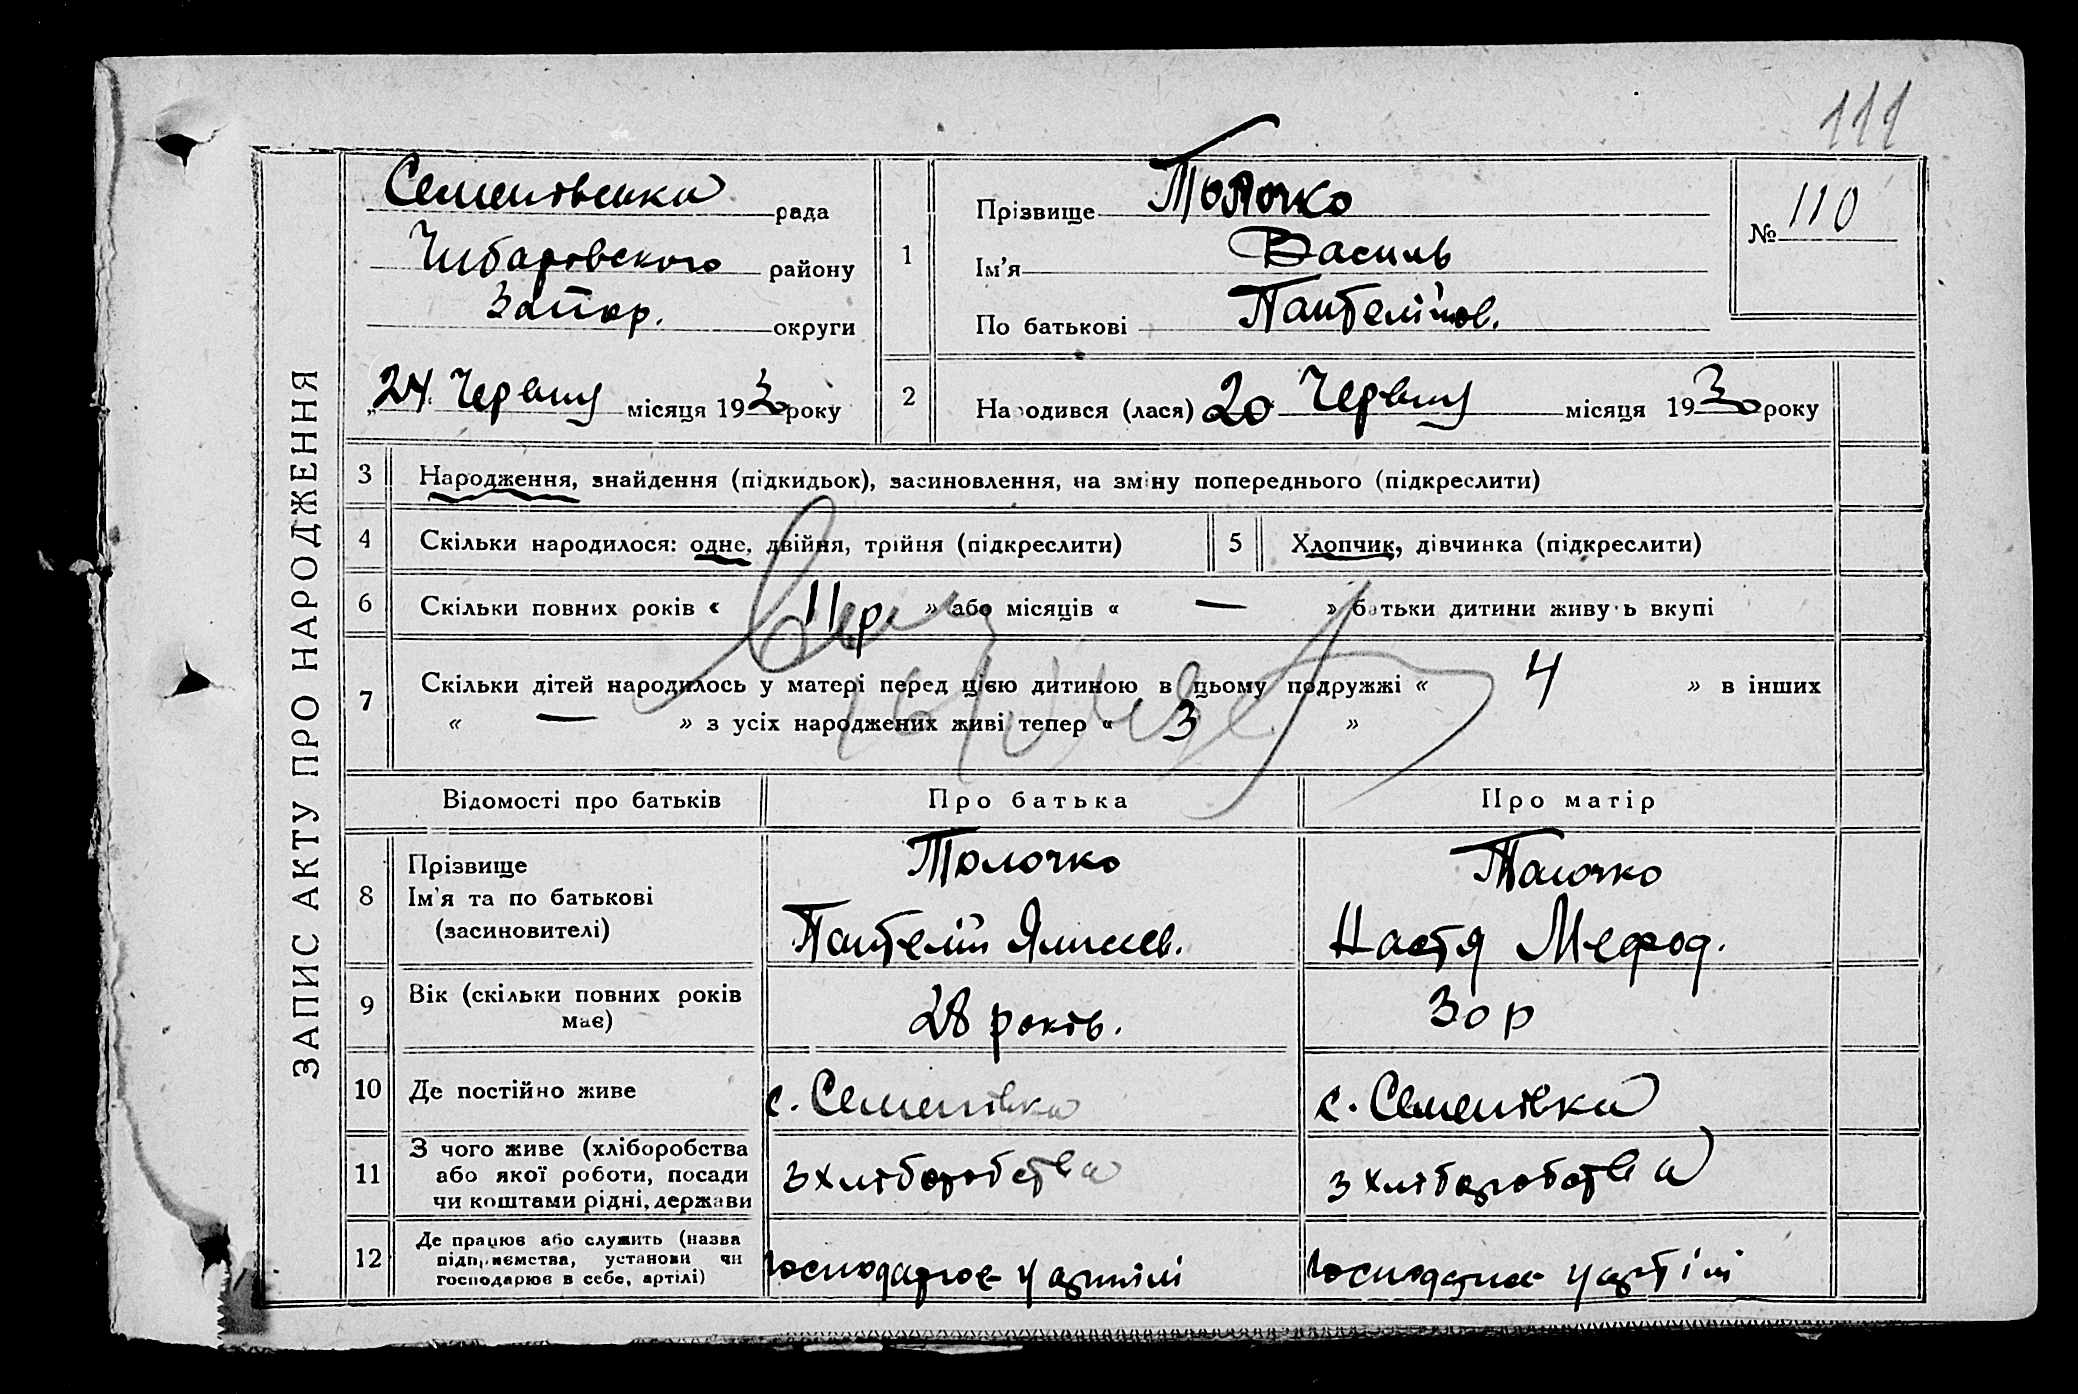 111
ЗАПИС АКТУ ПРО НАРОДЖЕННЯ
Семенівська рада
Чубаровського району
Запор. округи
„24 Червця місяця 1930 року
1
Прізвище Толочко
Ім'я Василь
По батькові Пантелійов.
№ 110
2
Народився (лася) 20 Червця місяця 1930 року
3 Народження, знайдення (підкидьок), засиновлення, на зміну попереднього (підкреслити)
4 Скільки народилося: одне, двійня, трійня (підкреслити)
5 Хлопчик, дівчинка (підкреслити)
6 Скільки повних років « 11 р » або місяців « — » батьки дитини живуть вкупі
7 Скільки дітей народилось у матері перед цією дитиною в цьому подружжі « 4 » в інших
« — » з усіх народжених живі тепер « 3 »
Відомості про батьків Про батька Про матір
8 Прізвище
Ім'я та по батькові
(засиновителі)
Толочко
Пантелій
Толочко
Настя Мефод.
9 Вік (скільки повних років
має)
28 років.
30 р
10 Де постійно живе
с. Семенівка
с. Семенівка
11 З чого живе (хліборобства
або якої роботи, посади
чи коштами рідні, держави
з хліборобства
з хліборобства
12 Де працює або служить (назва
підприємства, установи чи
господарює в себе, артілі)
господарює у артілі
господарює у артілі